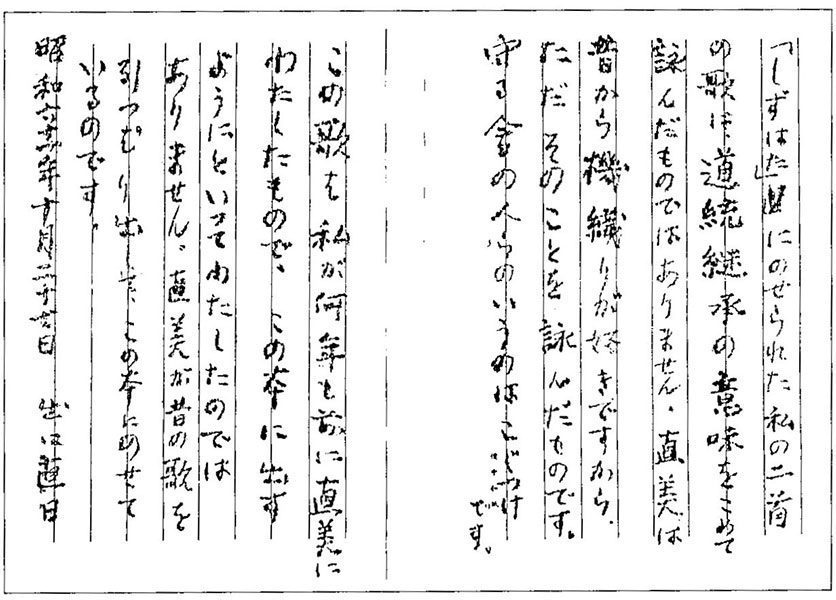 「しずはた」にのせられた私の二首
の歌は、道統継承の意味をこめて
詠んだものではありません。直美は
昔から機織りが好きですから、
ただそのことを詠んだものです。
守る会の人々のいうのはこじつけ
です。
この歌は私が何年も前に直美に
わたしたもので、この本に出す
ようにといってわたしたのでは
ありません。直美が昔の歌を
引っぱり出して、この本にのせて
いるのです。
昭和年十月日 出口直日